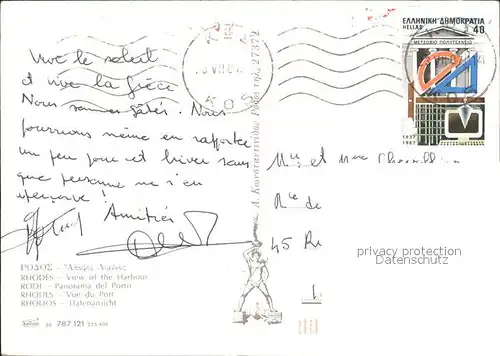 Vive le soleil
et vive la Grèce
Nous sommes gâtés. Nous
pourrions même en rapporter
un peu pour cet hiver sans
que personne ne s'en
aperçoive !
Amitiés
ΡΟΔΟΣ - Ἄποψις Λιμένος
RHODES - View of the Harbour
RODI - Panorama del Porto
RHODES - Vue du Port
RHODOS - Hafenansicht
96 787.121
Δ. Κωνσταντινίδη, Ρόδου τηλ. 27372
ΡΟΣ
ΕΛΛΗΝΙΚΗ ΔΗΜΟΚΡΑΤΙΑ
HELLAS 40
ΜΕΤΣΟΒΙΟ ΠΟΛΥΤΕΧΝΕΙΟ
1837
1987
et Mme
Rue de
45
privacy protection
Datenschutz